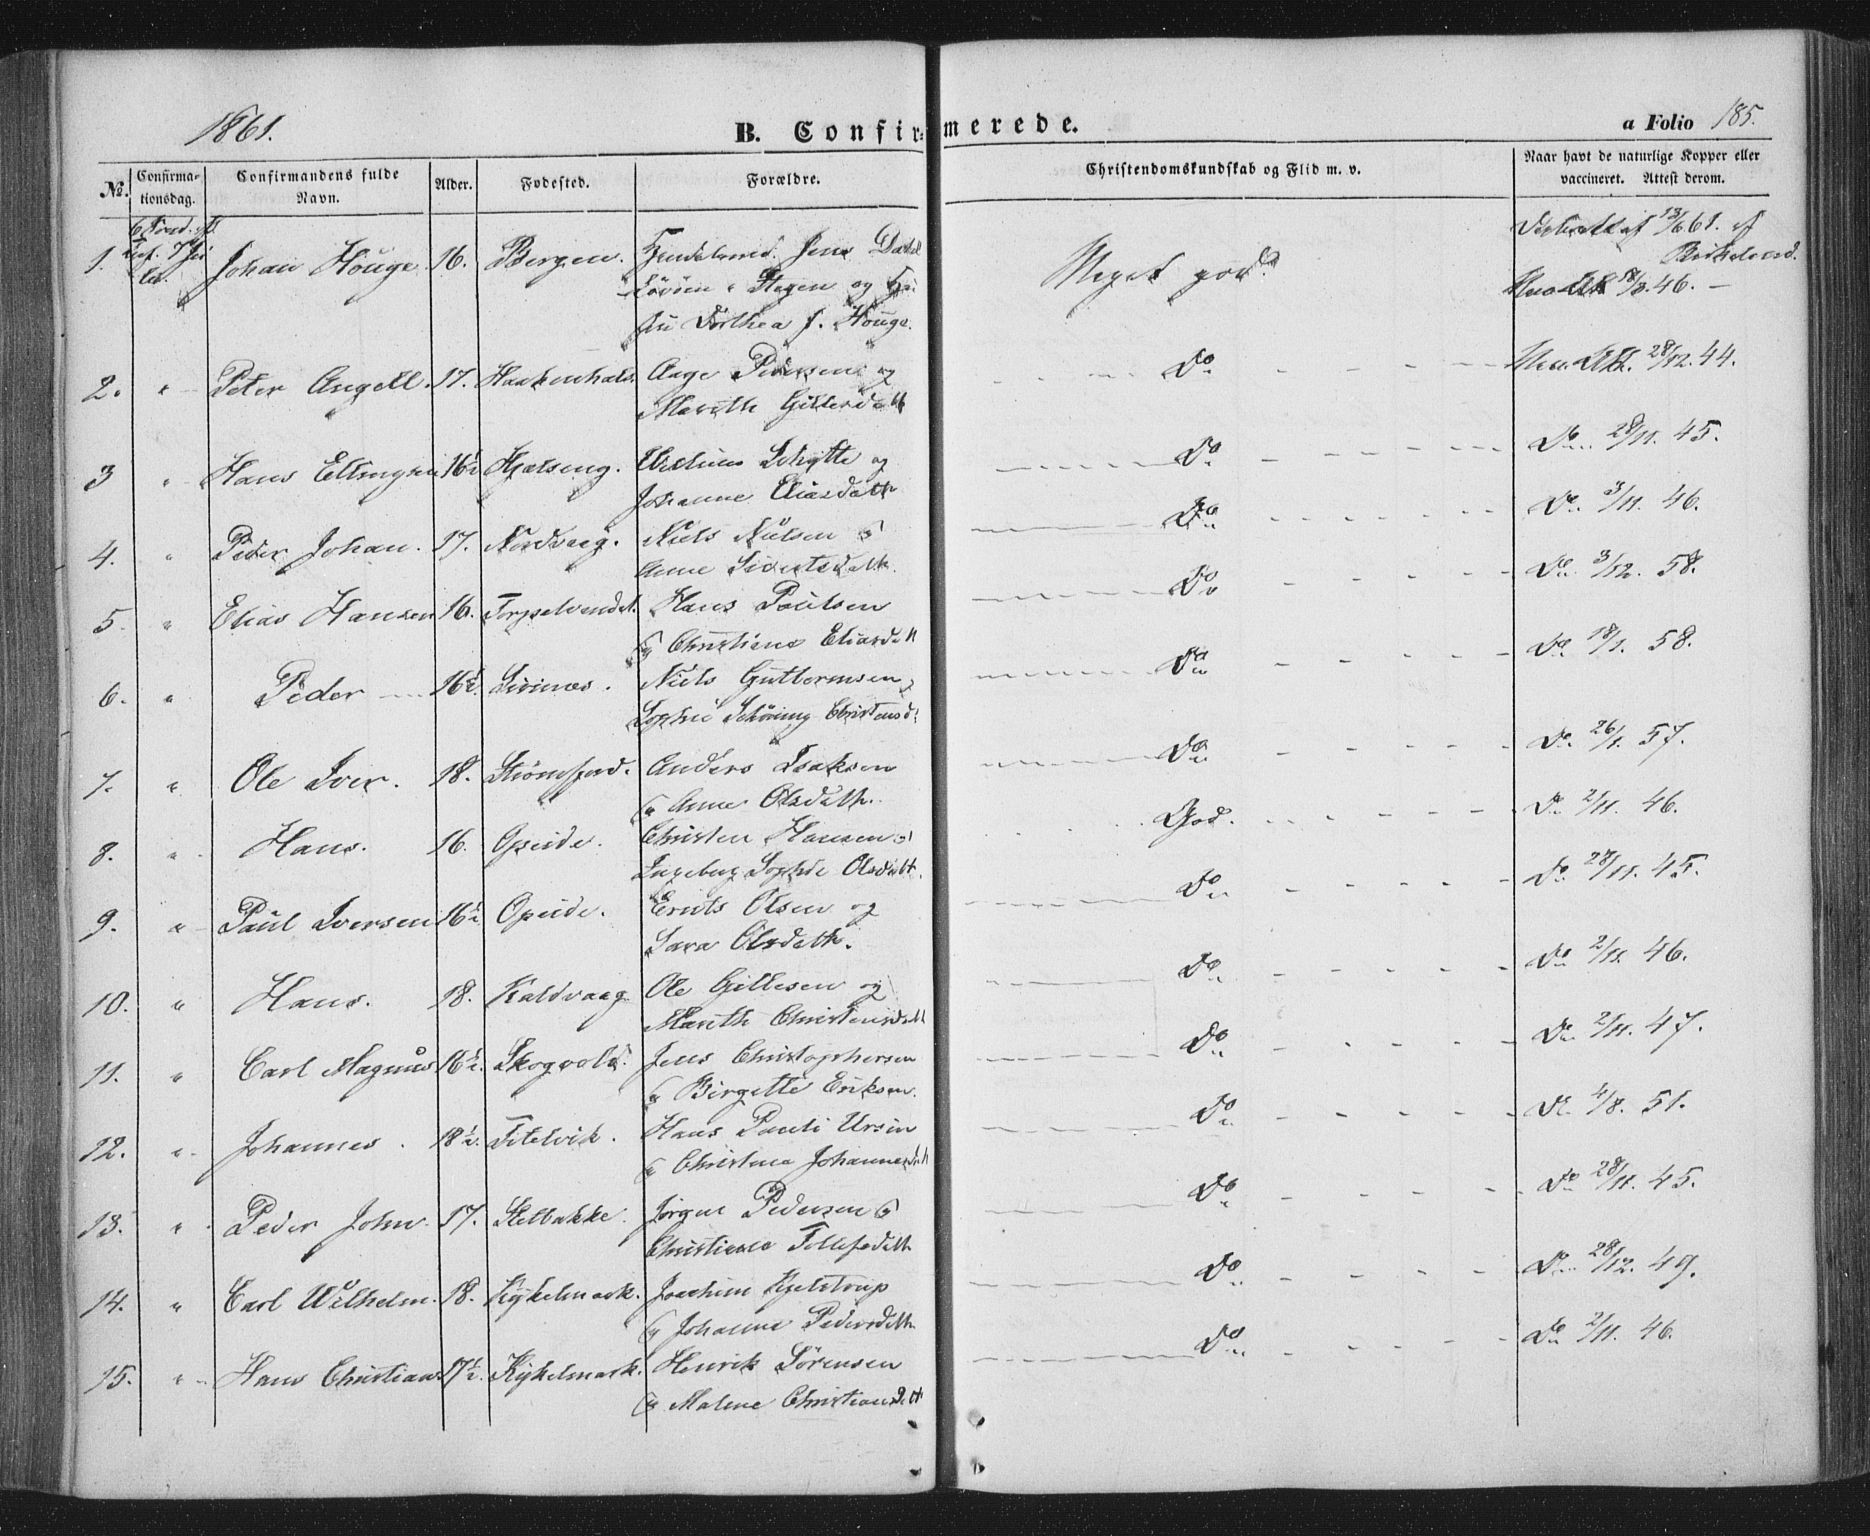 1861.
B. Confirmerede.
a Folio 185.
No. Confirmationsdag. Confirmandens fulde Navn. Alder. Fødested. Forældre. Christendomskundskab og Flid m. v. Naar havt de naturlige Kopper eller vaccineret. Attest derom.
1. Johan Houge 16. Bergen. Jens Meget god. 13/6 61. af
og Birkeland.
Dorthea f. Houge. 18/8. 46. —
2. " Peter Angell. 17. Haakenhals. Aage Pedersen og Do 28/12. 44.
Marith Gillersdatt
3 " Hans Ellingsen 16½ Hjelseng. Schytte og Do Do. 28/11. 45.
Johanne Eliasdatt
4. " Peder Johan. 17. Nordvaag. Niels Nielsen og Do Do. 3/11. 46.
Anne Sivertsdatt.
5. " Elias Hansen 16. Hans Poulsen Do Do. 3/12. 58.
og Christiane Eliasdatt
6. " Peder 16½. Niels Guttormsen Do Do 18/1. 58.
Sophie Schöning Christensd.
7. " Ole Iver. 18. Strömsfjord. Anders Isaksen Do Do. 26/1. 57.
og Anne Olsdatt.
8. " Hans. 16. Opeide. Christen Hansen og God. Do 2/11. 46.
Ingeborg Sophie Olsdatt.
9. " Paul Iversen 16½ Opeide. Olsen og Do Do 28/11. 45.
Sara Olsdatt.
10. " Hans. 18. Kaldvaag Ole Gillesen og Do Do 2/11. 46.
Marith Christensdatt
11. " Carl Magnus 16½. Skogvold. Jens Christophersen Do Do 2/11. 47.
og Birgette Eriksen.
12. " Johannes. 18½. Hans Pauli Ursin Do Do. 4/8. 51.
og Christine Johannesdatt
13. " Peder John. 17. Jörgen Pedersen og Do Do 28/11. 45.
Christiane Tollefsdatt
14. " Carl Wilhelm. 18. Kykelmark. Joachim Kjelstrup Do Do 28/12. 49.
og Johanne Pedersdatt
15. " Hans Christian 17½. Kykelmark. Henrik Sörensen Do Do 2/11. 46.
og Malene Christiansdatt